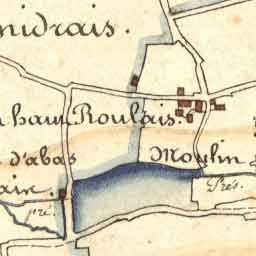 nidrais.
haut Roulais.
d'abas Moulin
aire. Prés.
pré.